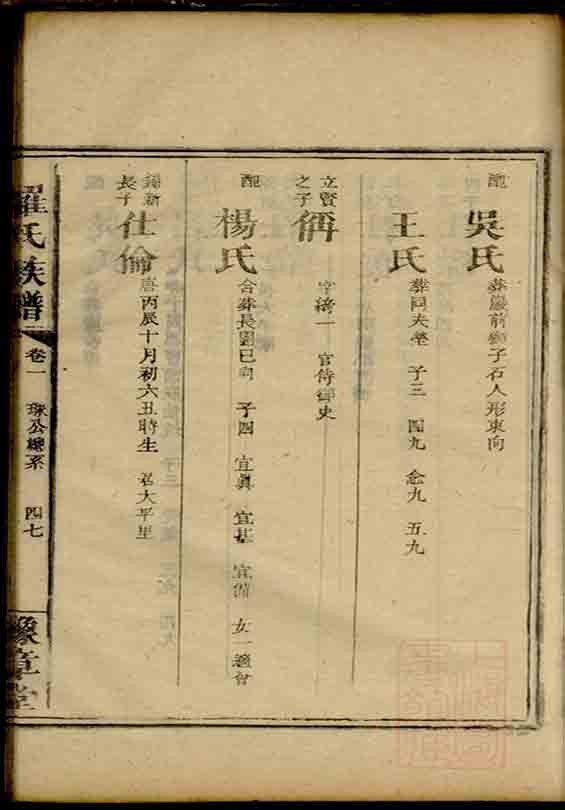 配 吳氏 葬嚴前獅子石人形東向
王氏 葬同夫塋 子三 四九 念九 五九
立賢之子 偁 字綺一 官侍御史
配 楊氏 合葬長園巳向 子四 宜眞 宜基 宜 女一適曾
錫新長子 仕倫 唐丙辰十月初六丑時生 居大平里
羅氏族譜 卷一 琛公總系 四七 豫章堂